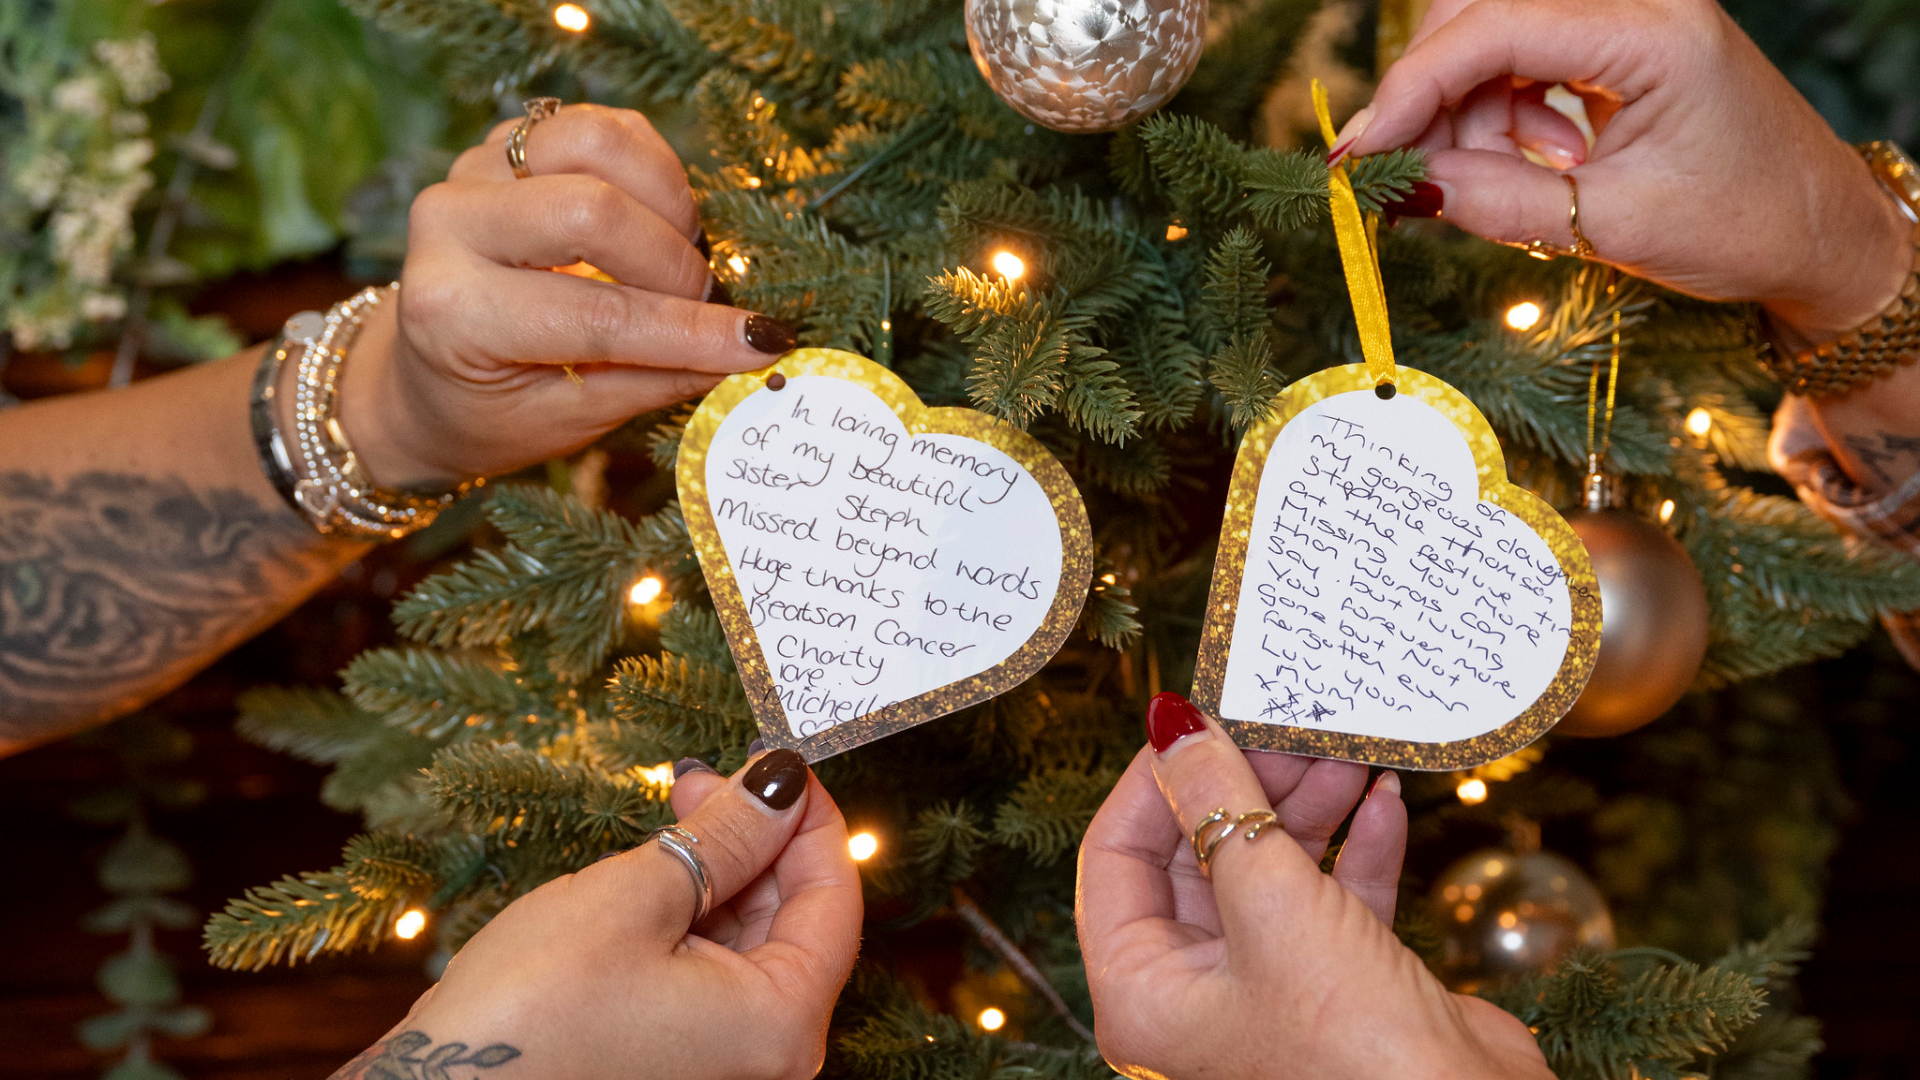 In loving memory
of my beautiful
sister Steph
Missed beyond words
Huge thanks to the
Beatson Cancer
Charity
love
Michelle
Thinking of
my gorgeous daughter
Stephaie Thomson
at the festive tim
Missing you more
than words can
say. but luving
you forever more
Gone but Not
Forgotten
Luv your
mum
x x x
x x x